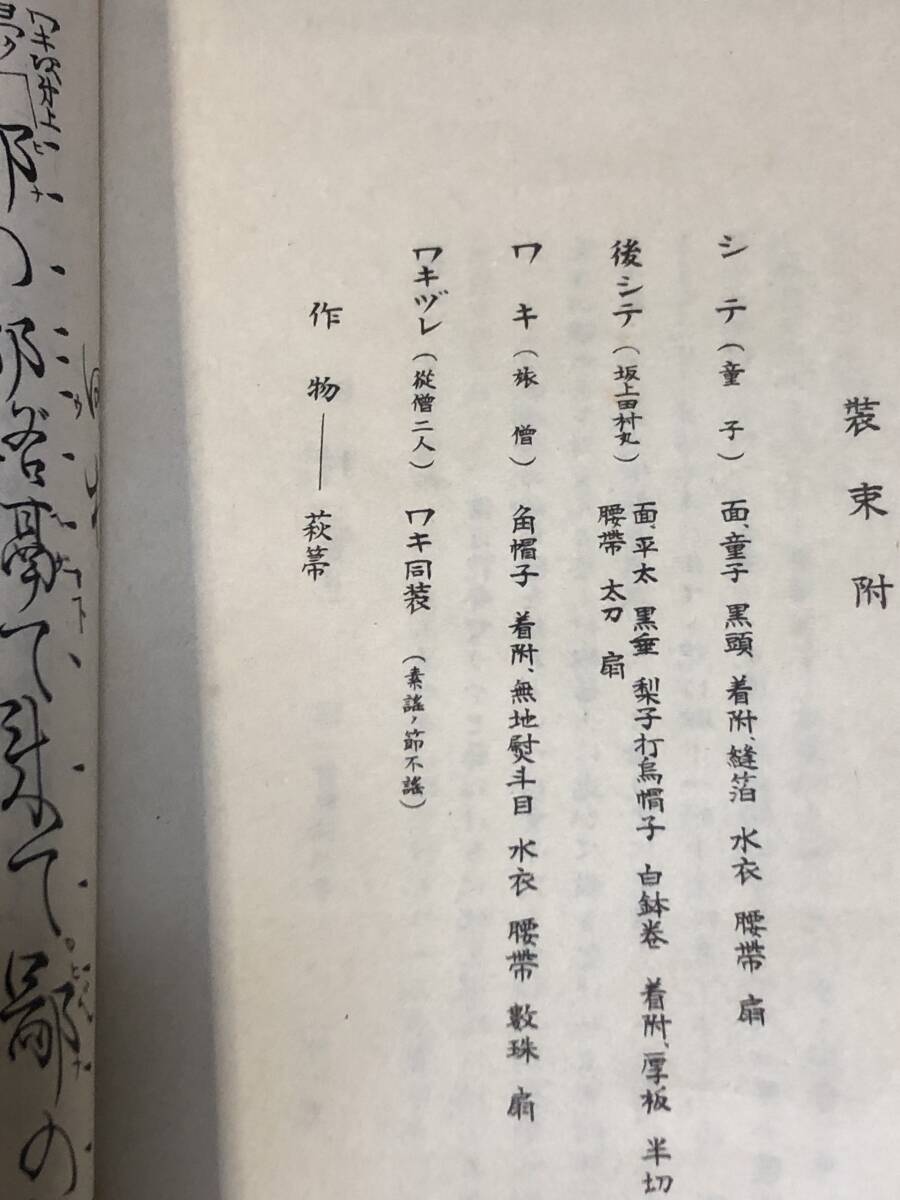 装束附
シテ（童子）　面、童子　黒頭　着附、縫箔　水衣　腰帶　扇
後シテ（坂上田村丸）　面、平太　黒垂　梨子打烏帽子　白鉢巻　着附、厚板　半切
腰帶　太刀　扇
ワキ（旅僧）　角帽子　着附、無地熨斗目　水衣　腰帶　數珠　扇
ワキヅレ（從僧二人）　ワキ同装　（素謡ノ節不謡）
作物――萩箒
の都客臺て來て鄙の